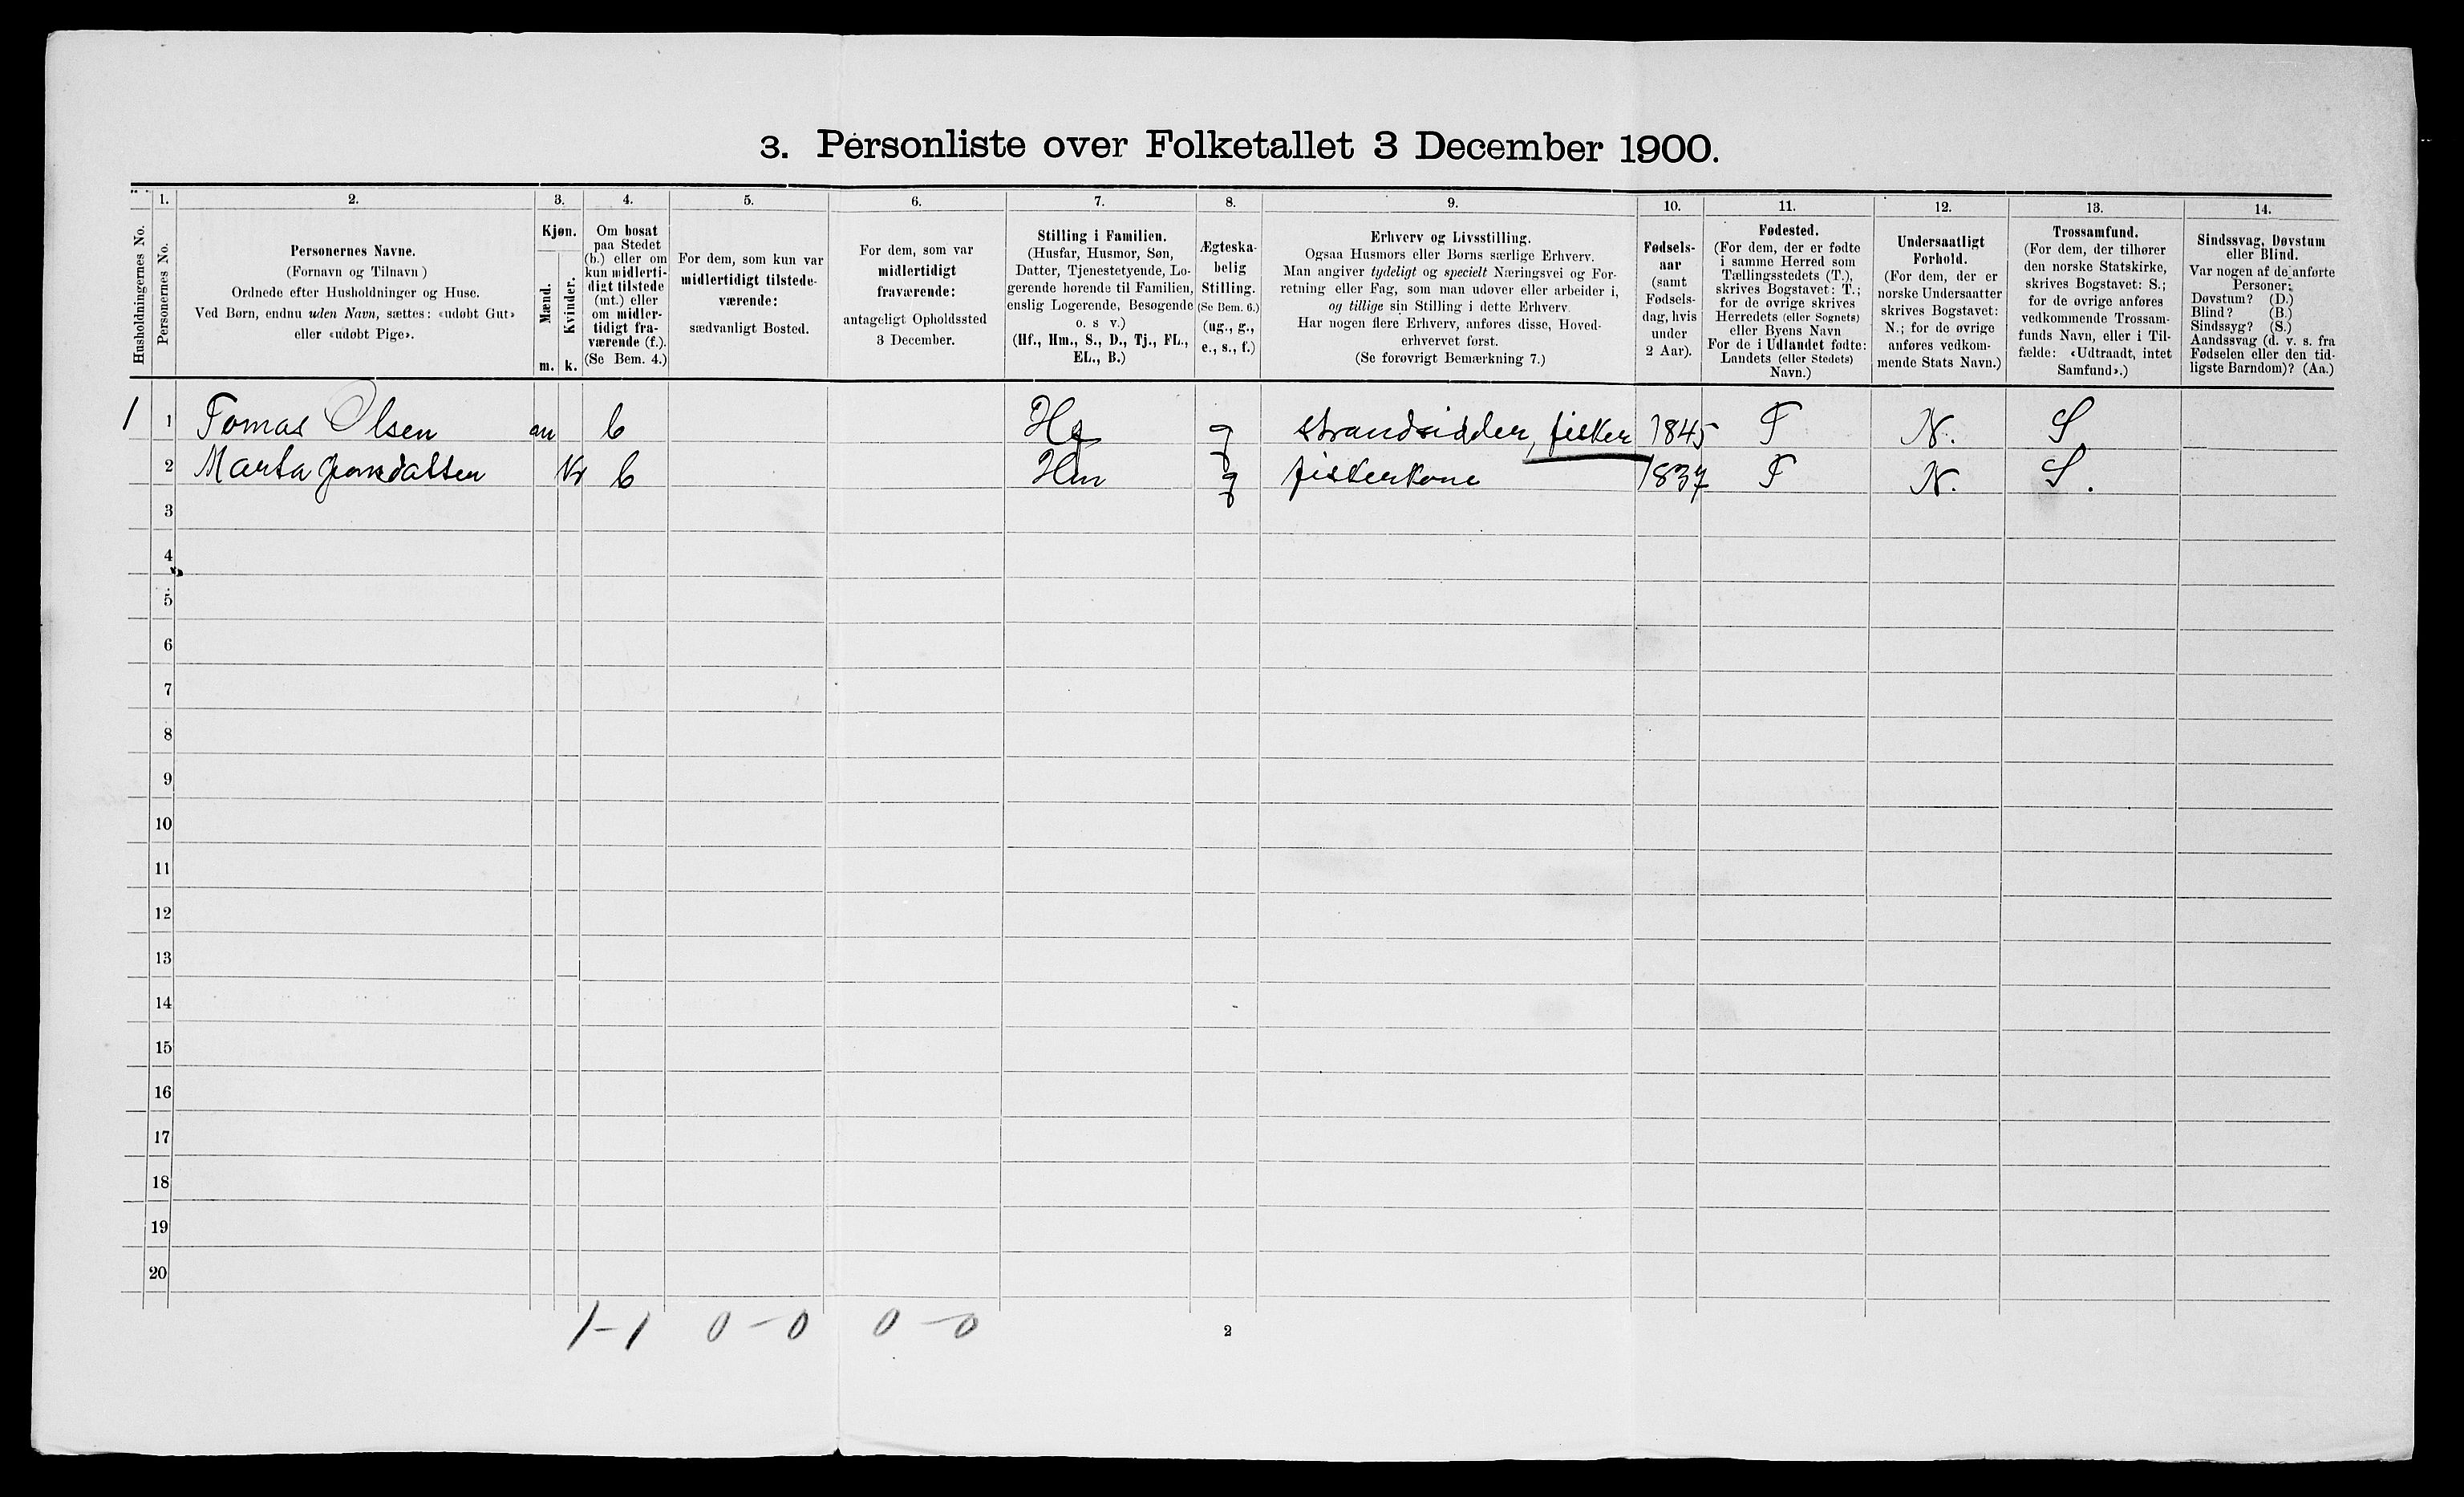 3. Personliste over Folketallet 3 December 1900.
1. 2. 3. 4. 5. 6. 7. 8. 9. 10. 11. 12. 13. 14.
Husholdningernes No.
Personernes No.
Personernes Navne.
(Fornavn og Tilnavn)
Ordnede efter Husholdninger og Huse.
Ved Børn, endnu uden Navn, sættes: «udøbt Gut»
eller «udøbt Pige».
Kjøn.
Mænd.
Kvinder.
m. k.
Om bosat
paa Stedet
(b.) eller om
kun midlerti-
digt tilstede
(mt.) eller
om midler-
tidigt fra-
værende (f.).
(Se Bem. 4.)
For dem, som kun var
midlertidigt tilstede-
værende:
sædvanligt Bosted.
For dem, som var
midlertidigt
fraværende:
antageligt Opholdssted
3 December.
Stilling i Familien.
(Husfar, Husmor, Søn,
Datter, Tjenestetyende, Lo-
gerende hørende til Familien,
enslig Logerende, Besøgende
o. s v.)
(Hf., Hm., S., D., Tj., FL.,
EL., B.)
Ægteska-
belig
Stilling.
(Se Bem. 6.)
(ug., g.,
e., s., f.)
Erhverv og Livsstilling.
Ogsaa Husmors eller Børns særlige Erhverv.
Man angiver tydeligt og specielt Næringsvei og For-
retning eller Fag, som man udøver eller arbeider i,
og tillige sin Stilling i dette Erhverv.
Har nogen flere Erhverv, anføres disse, Hoved-
erhvervet først.
(Se forøvrigt Bemærkning 7.)
Fødsels-
aar
(samt
Fødsels-
dag, hvis
under
2 Aar).
Fødested.
(For dem, der er fødte
i samme Herred som
Tællingsstedets (T.),
skrives Bogstavet: T.;
for de øvrige skrives
Herredets (eller Sognets)
eller Byens Navn
For de i Udlandet fødte:
Landets (eller Stedets)
Navn.)
Undersaatligt
Forhold.
(For dem, der er
norske Undersaatter
skrives Bogstavet:
N.; for de øvrige
anføres vedkom-
mende Stats Navn.)
Trossamfund.
(For dem, der tilhører
den norske Statskirke,
skrives Bogstavet: S.;
for de øvrige anføres
vedkommende Trossam-
funds Navn, eller i Til-
fælde: «Udtraadt, intet
Samfund».)
Sindssvag, Døvstum
eller Blind.
Var nogen af de anførte
Personer:
Døvstum? (D.)
Blind? (B.)
Sindssyg? (S.)
Aandssvag (d. v. s. fra
Fødselen eller den tid-
ligste Barndom)? (Aa.)
1 1 Tomas Olsen m b Hf g strandsidder, fisker 1845 T N. S
2 Marta Jonsdatter K b Hm g fiskerkone 1837 T N. S.
3
4
5
6
7
8
9
10
11
12
13
14
15
16
17
18
19
20
1-1 0-0 0-0
2